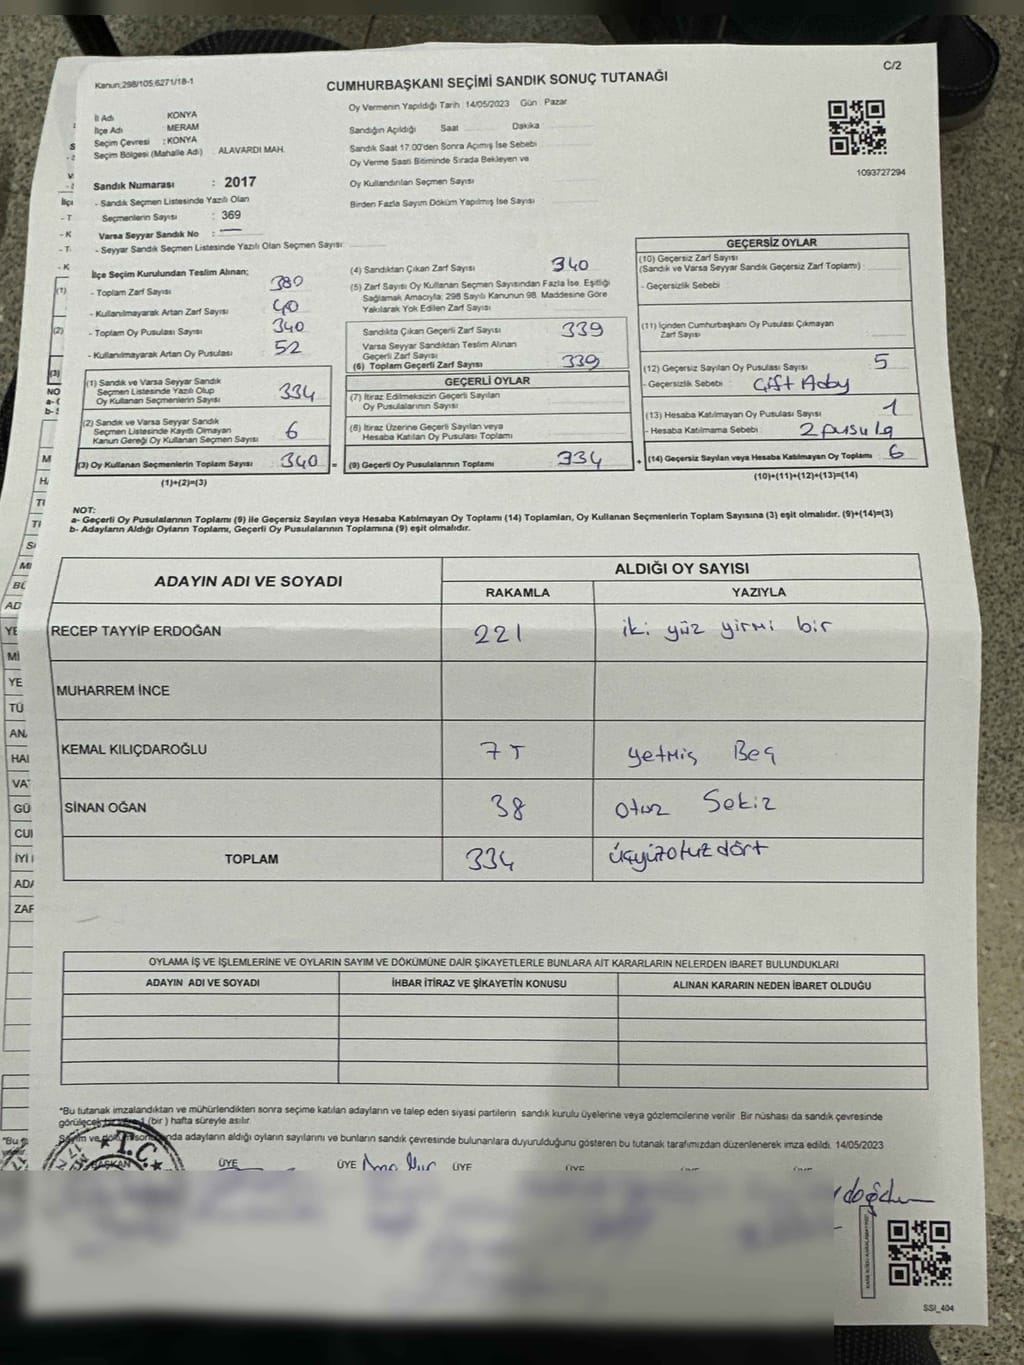 C/2
Kanun:298/105,6271/18-1
CUMHURBAŞKANI SEÇİMİ SANDIK SONUÇ TUTANAĞI
İl Adı KONYA
İlçe Adı MERAM
Seçim Çevresi : KONYA
Seçim Bölgesi (Mahalle Adı) : ALAVARDI MAH.
Sandık Numarası : 2017
- Sandık Seçmen Listesinde Yazılı Olan
Seçmenlerin Sayısı : 369
Varsa Seyyar Sandık No :
- Seyyar Sandık Seçmen Listesinde Yazılı Olan Seçmen Sayısı:
Oy Vermenin Yapıldığı Tarih : 14/05/2023 Gün : Pazar
Sandığın Açıldığı Saat Dakika
Sandık Saat 17.00'den Sonra Açımış İse Sebebi
Oy Verme Saati Bitiminde Sırada Bekleyen ve
Oy Kullandırılan Seçmen Sayısı
Birden Fazla Sayım Döküm Yapılmış İse Sayısı
1093727294
İlçe Seçim Kurulundan Teslim Alınan;
- Toplam Zarf Sayısı 380
- Kullanılmayarak Artan Zarf Sayısı 40
- Toplam Oy Pusulası Sayısı 340
- Kullanılmayarak Artan Oy Pusulası 52
(1) Sandık ve Varsa Seyyar Sandık
Seçmen Listesinde Yazılı Olup
Oy Kullanan Seçmenlerin Sayısı 334
(2) Sandık ve Varsa Seyyar Sandık
Seçmen Listesinde Kayıtlı Olmayan
Kanun Gereği Oy Kullanan Seçmen Sayısı 6
(3) Oy Kullanan Seçmenlerin Toplam Sayısı 340 =
(1)+(2)=(3)
(4) Sandıktan Çıkan Zarf Sayısı 340
(5) Zarf Sayısı Oy Kullanan Seçmen Sayısından Fazla İse, Eşitliği
Sağlamak Amacıyla; 298 Sayılı Kanunun 98. Maddesine Göre
Yakılarak Yok Edilen Zarf Sayısı
Sandıkta Çıkan Geçerli Zarf Sayısı 339
Varsa Seyyar Sandıktan Teslim Alınan
Geçerli Zarf Sayısı
(6) Toplam Geçerli Zarf Sayısı 339
GEÇERLİ OYLAR
(7) İtiraz Edilmeksizin Geçerli Sayılan
Oy Pusulalarının Sayısı
(8) İtiraz Üzerine Geçerli Sayılan veya
Hesaba Katılan Oy Pusulası Toplamı
(9) Geçerli Oy Pusulalarının Toplamı 334 +
GEÇERSİZ OYLAR
(10) Geçersiz Zarf Sayısı
(Sandık ve Varsa Seyyar Sandık Geçersiz Zarf Toplamı) :
- Geçersizlik Sebebi
(11) İçinden Cumhurbaşkanı Oy Pusulası Çıkmayan
Zarf Sayısı
(12) Geçersiz Sayılan Oy Pusulası Sayısı : 5
- Geçersizlik Sebebi : Çift Aday
(13) Hesaba Katılmayan Oy Pusulası Sayısı 1
- Hesaba Katılmama Sebebi : 2 pusula
(14) Geçersiz Sayılan veya Hesaba Katılmayan Oy Toplamı 6
(10)+(11)+(12)+(13)=(14)
NOT:
a- Geçerli Oy Pusulalarının Toplamı (9) ile Geçersiz Sayılan veya Hesaba Katılmayan Oy Toplamı (14) Toplamları, Oy Kullanan Seçmenlerin Toplam Sayısına (3) eşit olmalıdır. (9)+(14)=(3)
b- Adayların Aldığı Oyların Toplamı, Geçerli Oy Pusulalarının Toplamına (9) eşit olmalıdır.
ADAYIN ADI VE SOYADI ALDIĞI OY SAYISI
RAKAMLA YAZIYLA
RECEP TAYYİP ERDOĞAN 221 iki yüz yirmi bir
MUHARREM İNCE
KEMAL KILIÇDAROĞLU 75 yetmiş Beş
SİNAN OĞAN 38 otuz Sekiz
TOPLAM 334 üçyüzotuzdört
OYLAMA İŞ VE İŞLEMLERİNE VE OYLARIN SAYIM VE DÖKÜMÜNE DAİR ŞİKAYETLERLE BUNLARA AİT KARARLARIN NELERDEN İBARET BULUNDUKLARI
ADAYIN ADI VE SOYADI İHBAR İTİRAZ VE ŞİKAYETİN KONUSU ALINAN KARARIN NEDEN İBARET OLDUĞU
*Bu tutanak imzalandıktan ve mühürlendikten sonra seçime katılan adayların ve talep eden siyasi partilerin sandık kurulu üyelerine veya gözlemcilerine verilir. Bir nüshası da sandık çevresinde
görülecek bir yere 1 (bir) hafta süreyle asılır.
Sayım ve döküm sonucunda adayların aldığı oyların sayılarını ve bunların sandık çevresinde bulunanlara duyurulduğunu gösteren bu tutanak tarafımızdan düzenlenerek imza edildi. 14/05/2023
T.C.
BAŞKAN ÜYE ÜYE ÜYE
SSI_404